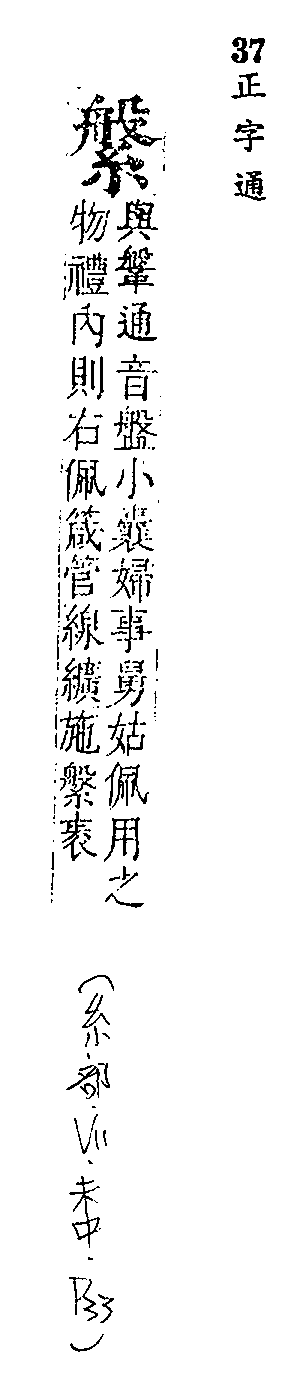 37正字通
縏
與鞶通音盤小囊婦事舅姑佩用之
物禮內則右佩箴管線纊施縏袠
(糸部·VII·未中·P33)